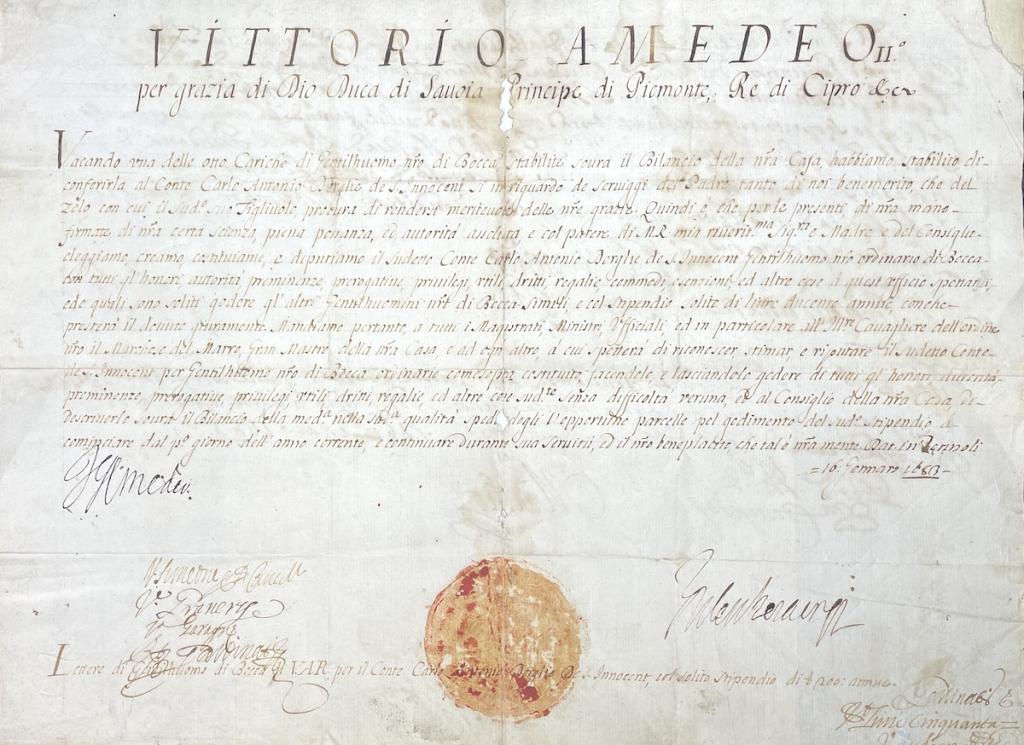 VITTORIO AMEDEO II.º
per grazia di Dio Duca di Savoia Principe di Piemonte, Re di Cipro &c
Vacando vna delle otto Cariche di Gentilhuomo nr̃o di Bocca stabilite soura il Bilancio della nr̃a Casa, habbiamo stabilito di
conferirla al Conte Carlo Antonio Berglie de S. Innocent, si in riguardo de seruiggi del Padre tanto di noi benemerito, che del
zelo con cui il Sud.º suo Figliuolo procura di rendersi meriteuole delle nr̃e grazie. Quindi è che per le presenti di nr̃a mano
firmate di nr̃a certa scienza, piena possanza, ed autorità assoluta, e col parere di M.R. mia riuerit.ma Sig.ra e Madre e del Consiglio
eleggiamo, creamo, costituiamo, e deputiamo il sudetto Conte Carlo Antonio Berglie de S. Innocent Gentilhuomo nr̃o ordinario di Bocca
con tutti gl'honori, autorità, preminenze, prerogatiue, priuilegi, vtili, dritti, regalie, commodi, esenzioni, ed altre cose à quest'vfficio spettanti,
e de quali sono soliti godere gl'altri Gentilhuomini nr̃i di Bocca Simili, e col Stipendio solito di liure ducento annue, con che
presterà il douuto giuramento. Mandiamo pertanto, a tutti i Magistrati, Ministri, Vfficiali, ed in particolare all' Ill.re Cauagliere dell'ordine
nr̃o il Marchese del Marro, Gran Mastro della nr̃a Casa, e ad ogn'altro, à cui spetterà di riconoscer, stimar, e riputare il sudetto Conte
de S. Innocent per Gentilhuomo nr̃o di Bocca ordinario come sopra costituito, facendolo, e lasciandolo godere di tutti gl'honori, autorità
preminenze, prerogatiue, priuilegi vtili, dritti, regalie ed altre cose sud.te Senza difficoltà veruna, & al Consiglio della nr̃a Casa, di
descriuerlo soura il Bilancio della med.a nella sud.a qualità sped. degli opportune parcelle pel godimento del sud.º stipendio à
cominciare dal p.º giorno dell'anno corrente, e continuare durante sua Seruitù, ed il nr̃o beneplacito, che tal è nr̃a mente. Dat. in
10 Gennaro 1683
V. Amedeo
V.
V.
V.
Lettere di Gentilhuomo di Bocca di V.A.R. per il Conte Carlo Antonio Berglio De S. Innocent, col solito Stipendio di £ 200: annue.
Cinquanta